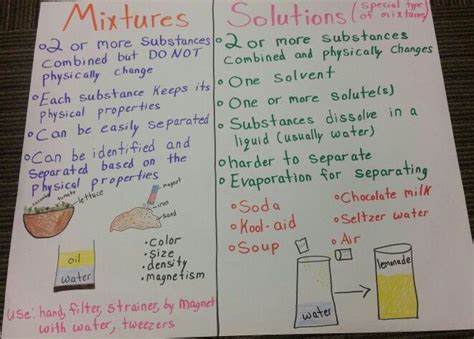 Mixtures
2 or more substances
combined but DO NOT
physically change
Each substance keeps its
physical properties
Can be easily separated
Can be identified and
separated based on the
physical properties
tomato
lettuce
magnet
iron
sand
oil
water
• color
• size
• density
• magnetism
use: hand, filter, strainer, by magnet
with water, tweezers
Solutions (special type
of mixtures)
2 or more substances
combined and physically changes
One solvent
One or more solute(s)
Substances dissolve in a
liquid (usually water)
harder to separate
Evaporation for separating
Soda
Kool-aid
Soup
Chocolate milk
Seltzer water
Air
water
lemonade